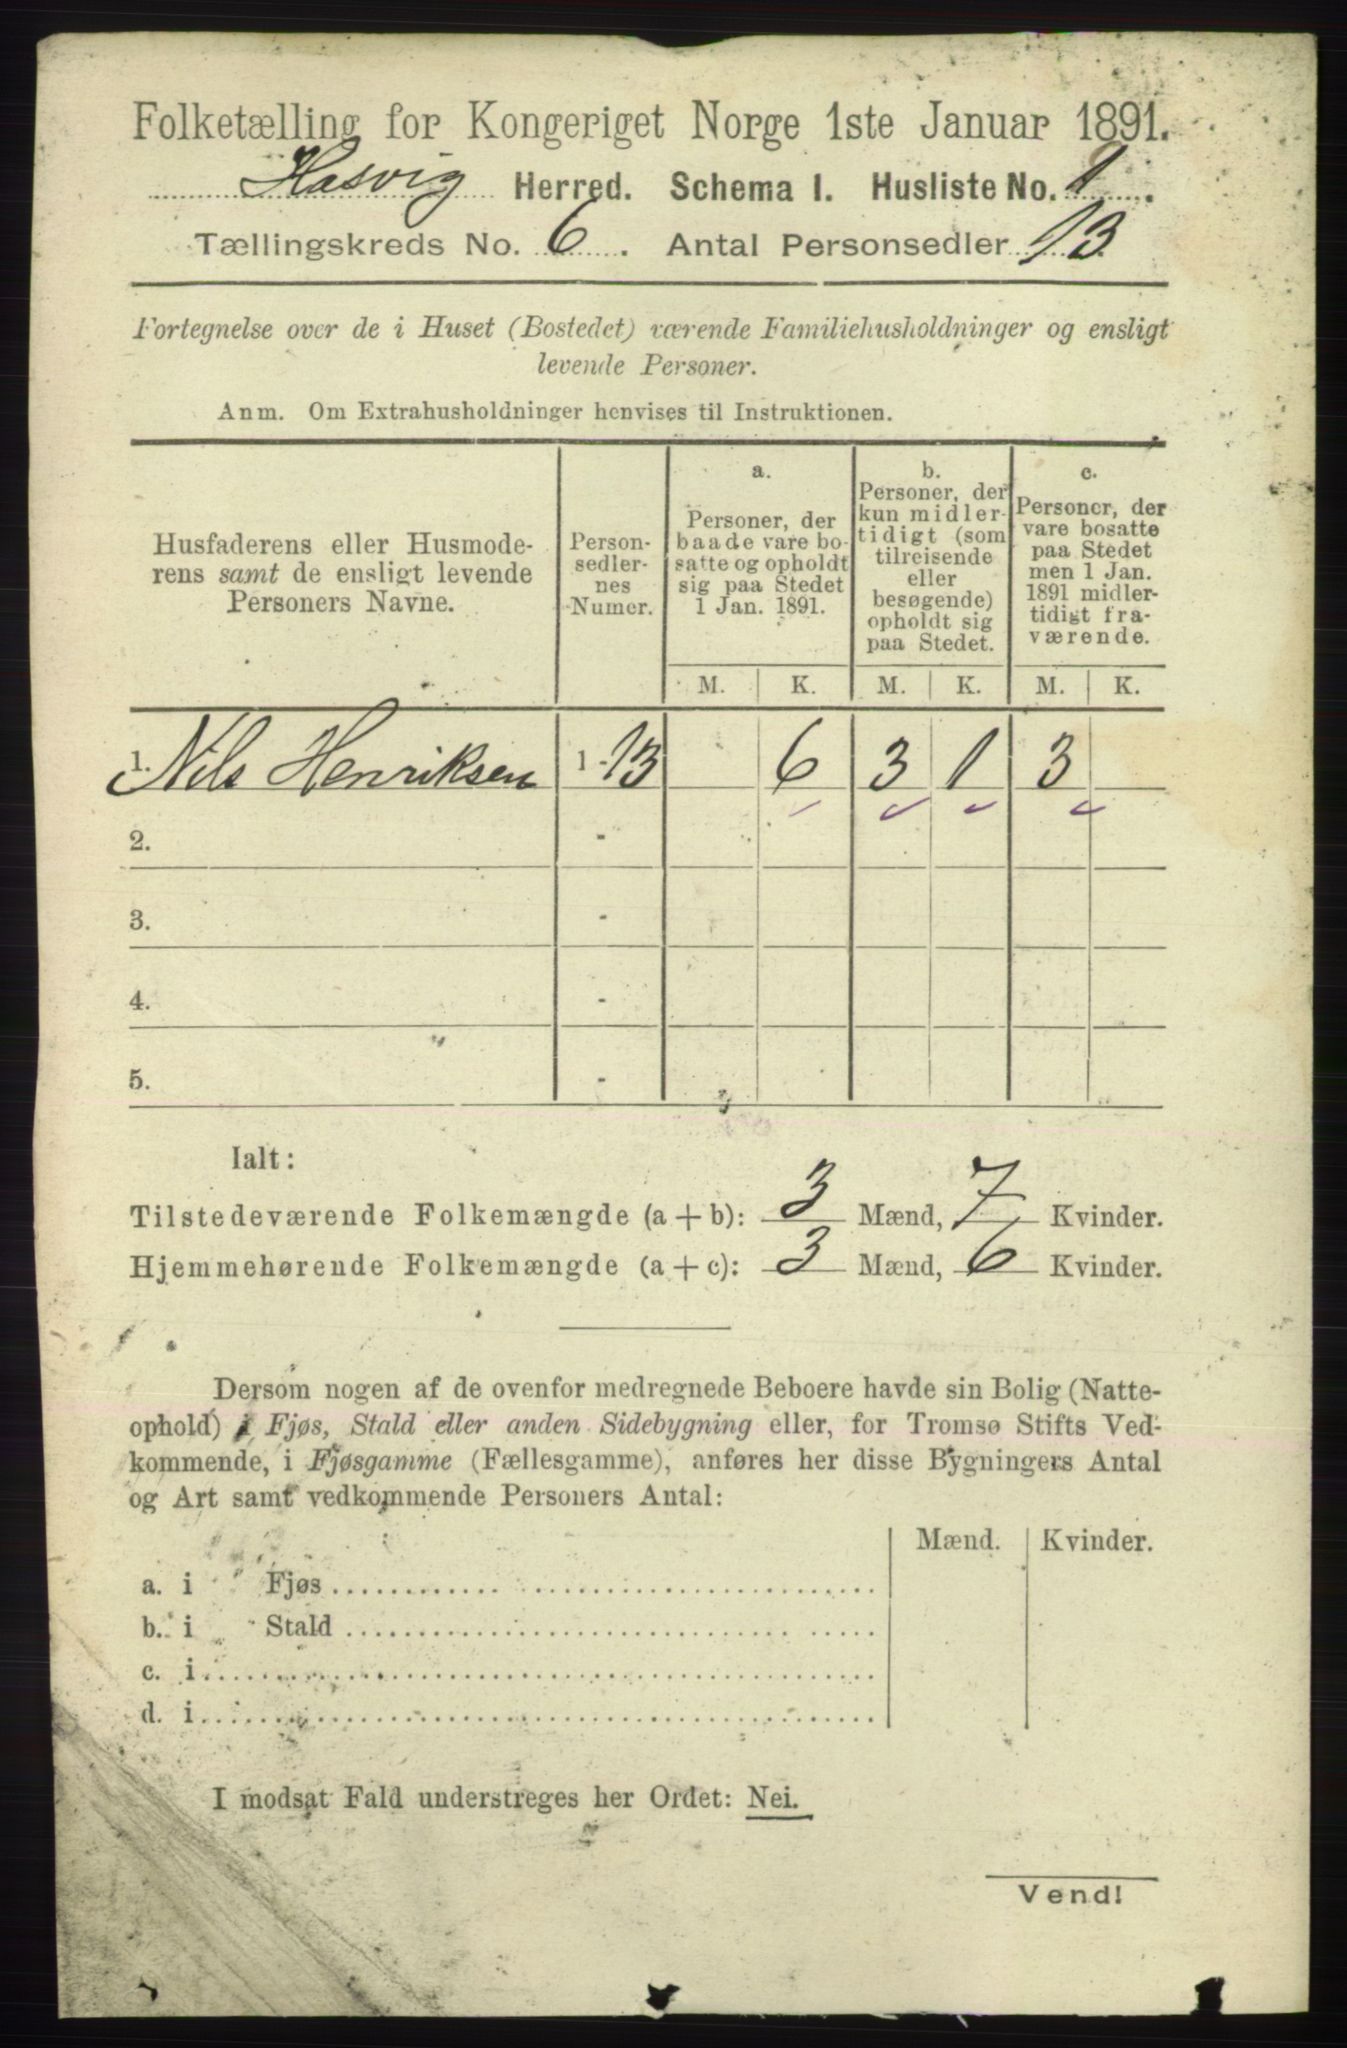 Folketælling for Kongeriget Norge 1ste Januar 1891.
Hasvig Herred. Schema I. Husliste No. 1.
Tællingskreds No. 6. Antal Personsedler 13.
Fortegnelse over de i Huset (Bostedet) værende Familiehusholdninger og ensligt
levende Personer.
Anm. Om Extrahusholdninger henvises til Instruktionen.
Husfaderens eller Husmode-
rens samt de ensligt levende
Personers Navne.
Person-
sedler-
nes
Numer.
a.
Personer, der
baade vare bo-
satte og opholdt
sig paa Stedet
1 Jan. 1891.
b.
Personer, der
kun midler-
tidigt (som
tilreisende
eller
besøgende)
opholdt sig
paa Stedet.
c.
Personer, der
vare bosatte
paa Stedet
men 1 Jan.
1891 midler-
tidigt fra-
værende.
M. K. M. K. M. K.
1. Nils Henriksen 1-13 6 3 1 3
2. -
3. -
4. -
5. -
Ialt:
Tilstedeværende Folkemængde (a+b): 3 Mænd, 7 Kvinder.
Hjemmehørende Folkemængde (a+c): 3 Mænd, 6 Kvinder.
Dersom nogen af de ovenfor medregnede Beboere havde sin Bolig (Natte-
ophold) i Fjøs, Stald eller anden Sidebygning eller, for Tromsø Stifts Ved-
kommende, i Fjøsgamme (Fællesgamme), anføres her disse Bygningers Antal
og Art samt vedkommende Personers Antal:
Mænd. Kvinder.
a. i Fjøs
b. i Stald
c. i
d. i
I modsat Fald understreges her Ordet: Nei.
Vend!